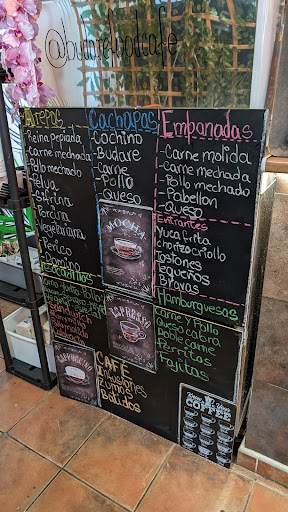 @budarefoodcafe
Arepas
-Reina pepiada
-Carne mechada
-Pollo mechado
-Pelua
-Sifrina
-Percira
-Vegetariana
-Perico
-Domino
Cachapas
-Cochino
-Budare
-Carne
-Pollo
-Queso
MOCHA
ESPRESSO
CAPPUCCINO
Empanadas
-Carne molida
-Carne mechada
-Pollo mechado
-Pabellon
-Queso
Entrantes
Yuca frita
Chorizo criollo
Tostones
Tequeños
Hamburguesas
Carne y Pollo
Queso cabra
Doble carne
Perritos
Fajitas
CAFÉ
Infusiones
Zumos
Batidos
COFFEE